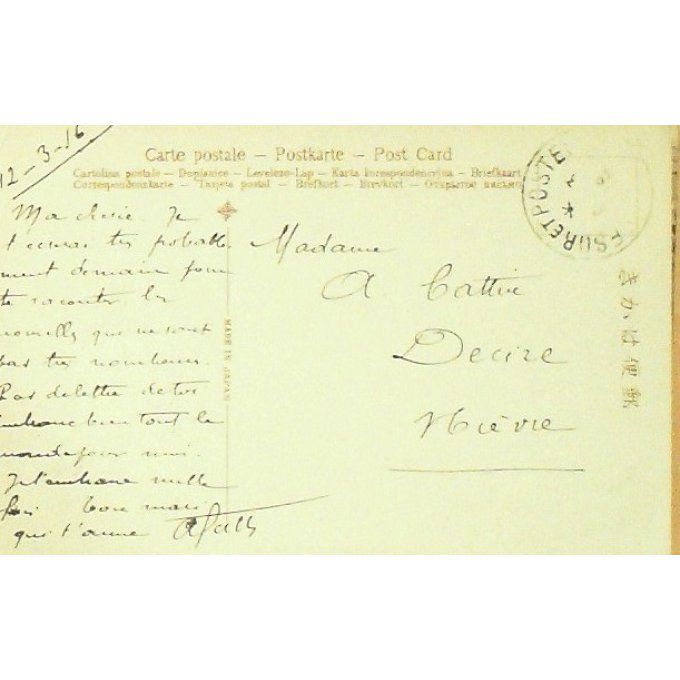 12-3-16
Carte postale – Postkarte – Post Card
Cartolina postale – Dopisnice – Levelezo-Lap – Karta korespondencyjna – Briefkaart
Correspondenzkarte – Tarjeta postal – Brefkort – Brevkort – Открытое письмо
Ma cherie. Je
t'ecrirai tres probable
ment demain pour
te raconter les
nouvelles qui ne sont
pas tres nombreuses.
Pas de lettre de toi
embrasse bien tout le
monde pour moi.
Je t'embrasse mille
fois bon mari
qui t'aime
MADE IN JAPAN
Madame
A. Cattin
Decize
Nièvre
TRESOR ET POSTES
きかは便郵